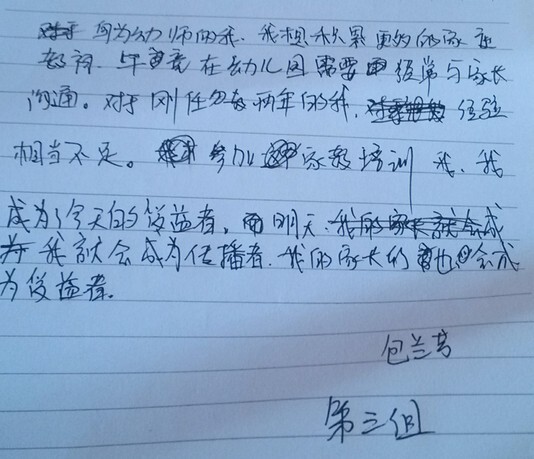 身为幼师的我，我想积累更多的家庭
教育，毕竟在幼儿园需要经常与家长
沟通。对于刚任教两年的我，经验
相当不足。参加家教培训，我
成为了今天的受益者，而明天，
我就会成为传播者，我的家长们也会成
为受益者。
包兰芳
第三组